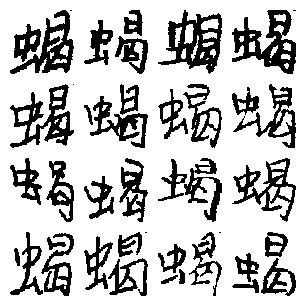 蝎蝎蝎蝎
蝎蝎蝎蝎
蝎蝎蝎蝎
蝎蝎蝎蝎